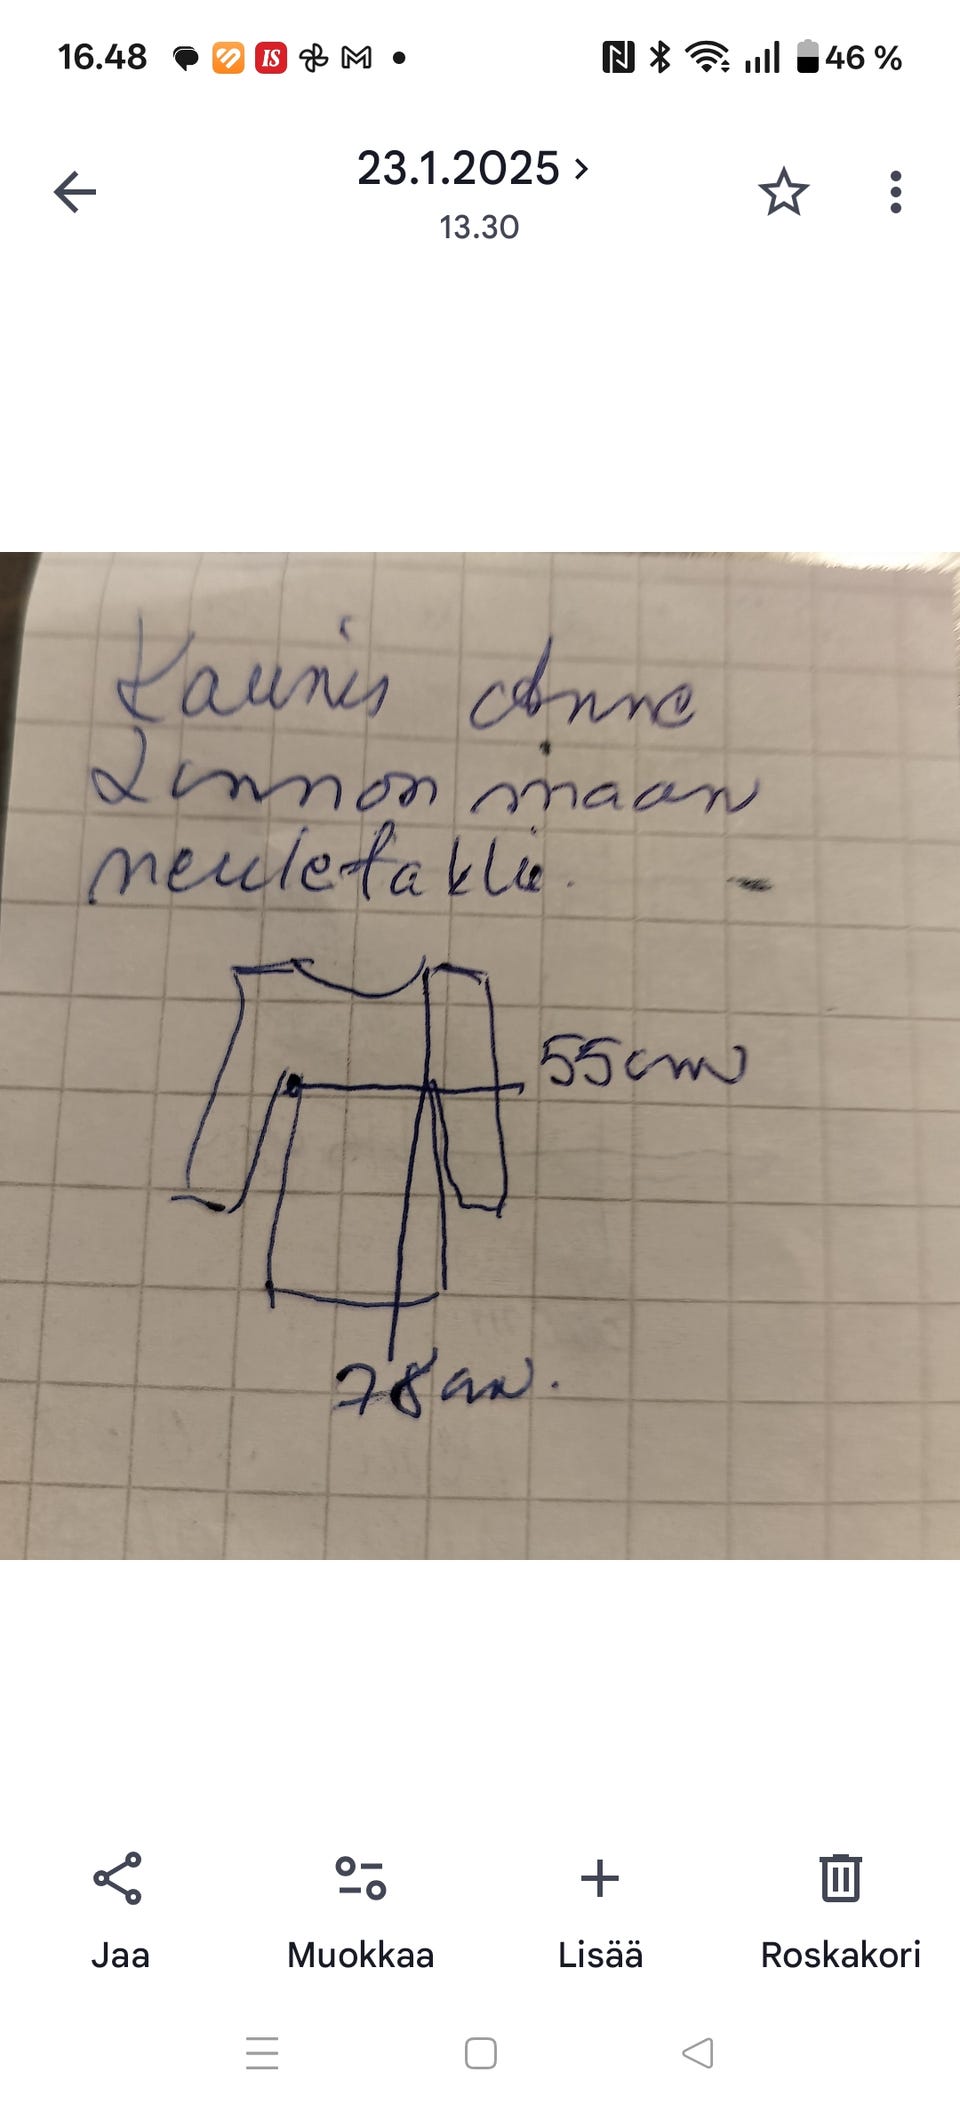 16.48 IS 46 %
23.1.2025
13.30
Kaunis Anne
Linnonmaan
neuletakki.
55cm
78cm.
Jaa Muokkaa Lisää Roskakori